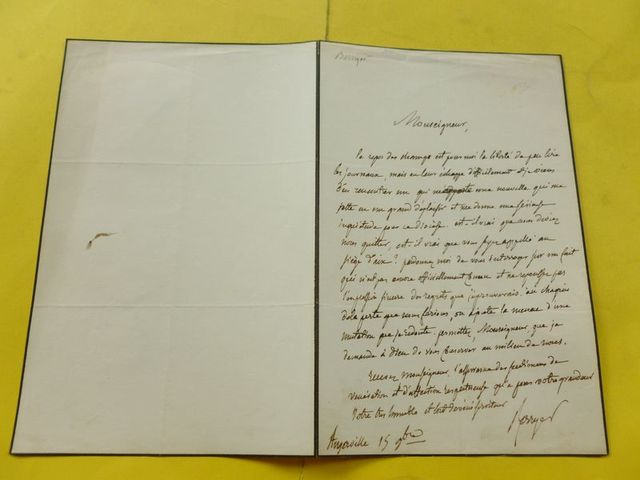 Berryer
Monseigneur,
le repos des champs est pour moi la liberté de peu lire
les journaux, mais on leur échappe difficilement et je viens
d'en rencontrer un qui une nouvelle qui me
fait un grand déplaisir et me donne une sérieuse
inquiétude pour ce diocèse. est-il vrai que vous deviez
nous quitter, est-il vrai que vous soyez appelé au
siège d'aix? pardonnez moi de vous interroger sur un fait
qui n'est pas encore officiellement connu et ne repousse pas
l'expression des regrets que j'éprouverais. au chagrin
de la perte que nous ferions, on ajoute la menace d'une
mutation que je redoute. permettez, Monseigneur, que je
demande à Dieu de vous conserver au milieu de nous.
recevez, monseigneur, l'assurance des sentiments de
vénération et d'affection respectueuse qu'a pour votre grandeur
Votre très humble et tout dévoué serviteur
Berryer
Angerville 15 9bre